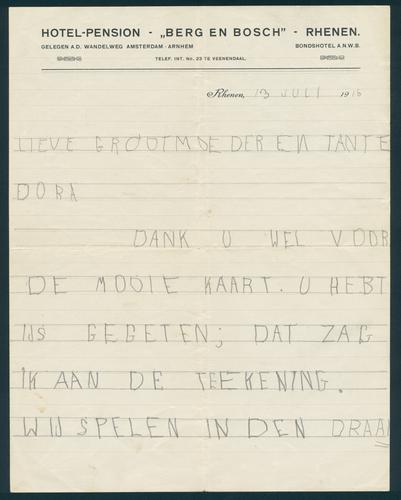 HOTEL-PENSION - „BERG EN BOSCH" - RHENEN.
GELEGEN A.D. WANDELWEG AMSTERDAM-ARNHEM BONDSHOTEL A.N.W.B.
TELEF. INT. No. 23 TE VEENENDAAL.
Rhenen, 13 JULI 1916
LIEVE GROOTMOEDER EN TANTE
DORA
DANK U WEL VOOR
DE MOOIE KAART. U HEBT
IJS GEGETEN; DAT ZAG
IK AAN DE TEEKENING.
WIJ SPELEN IN DEN DRAAI